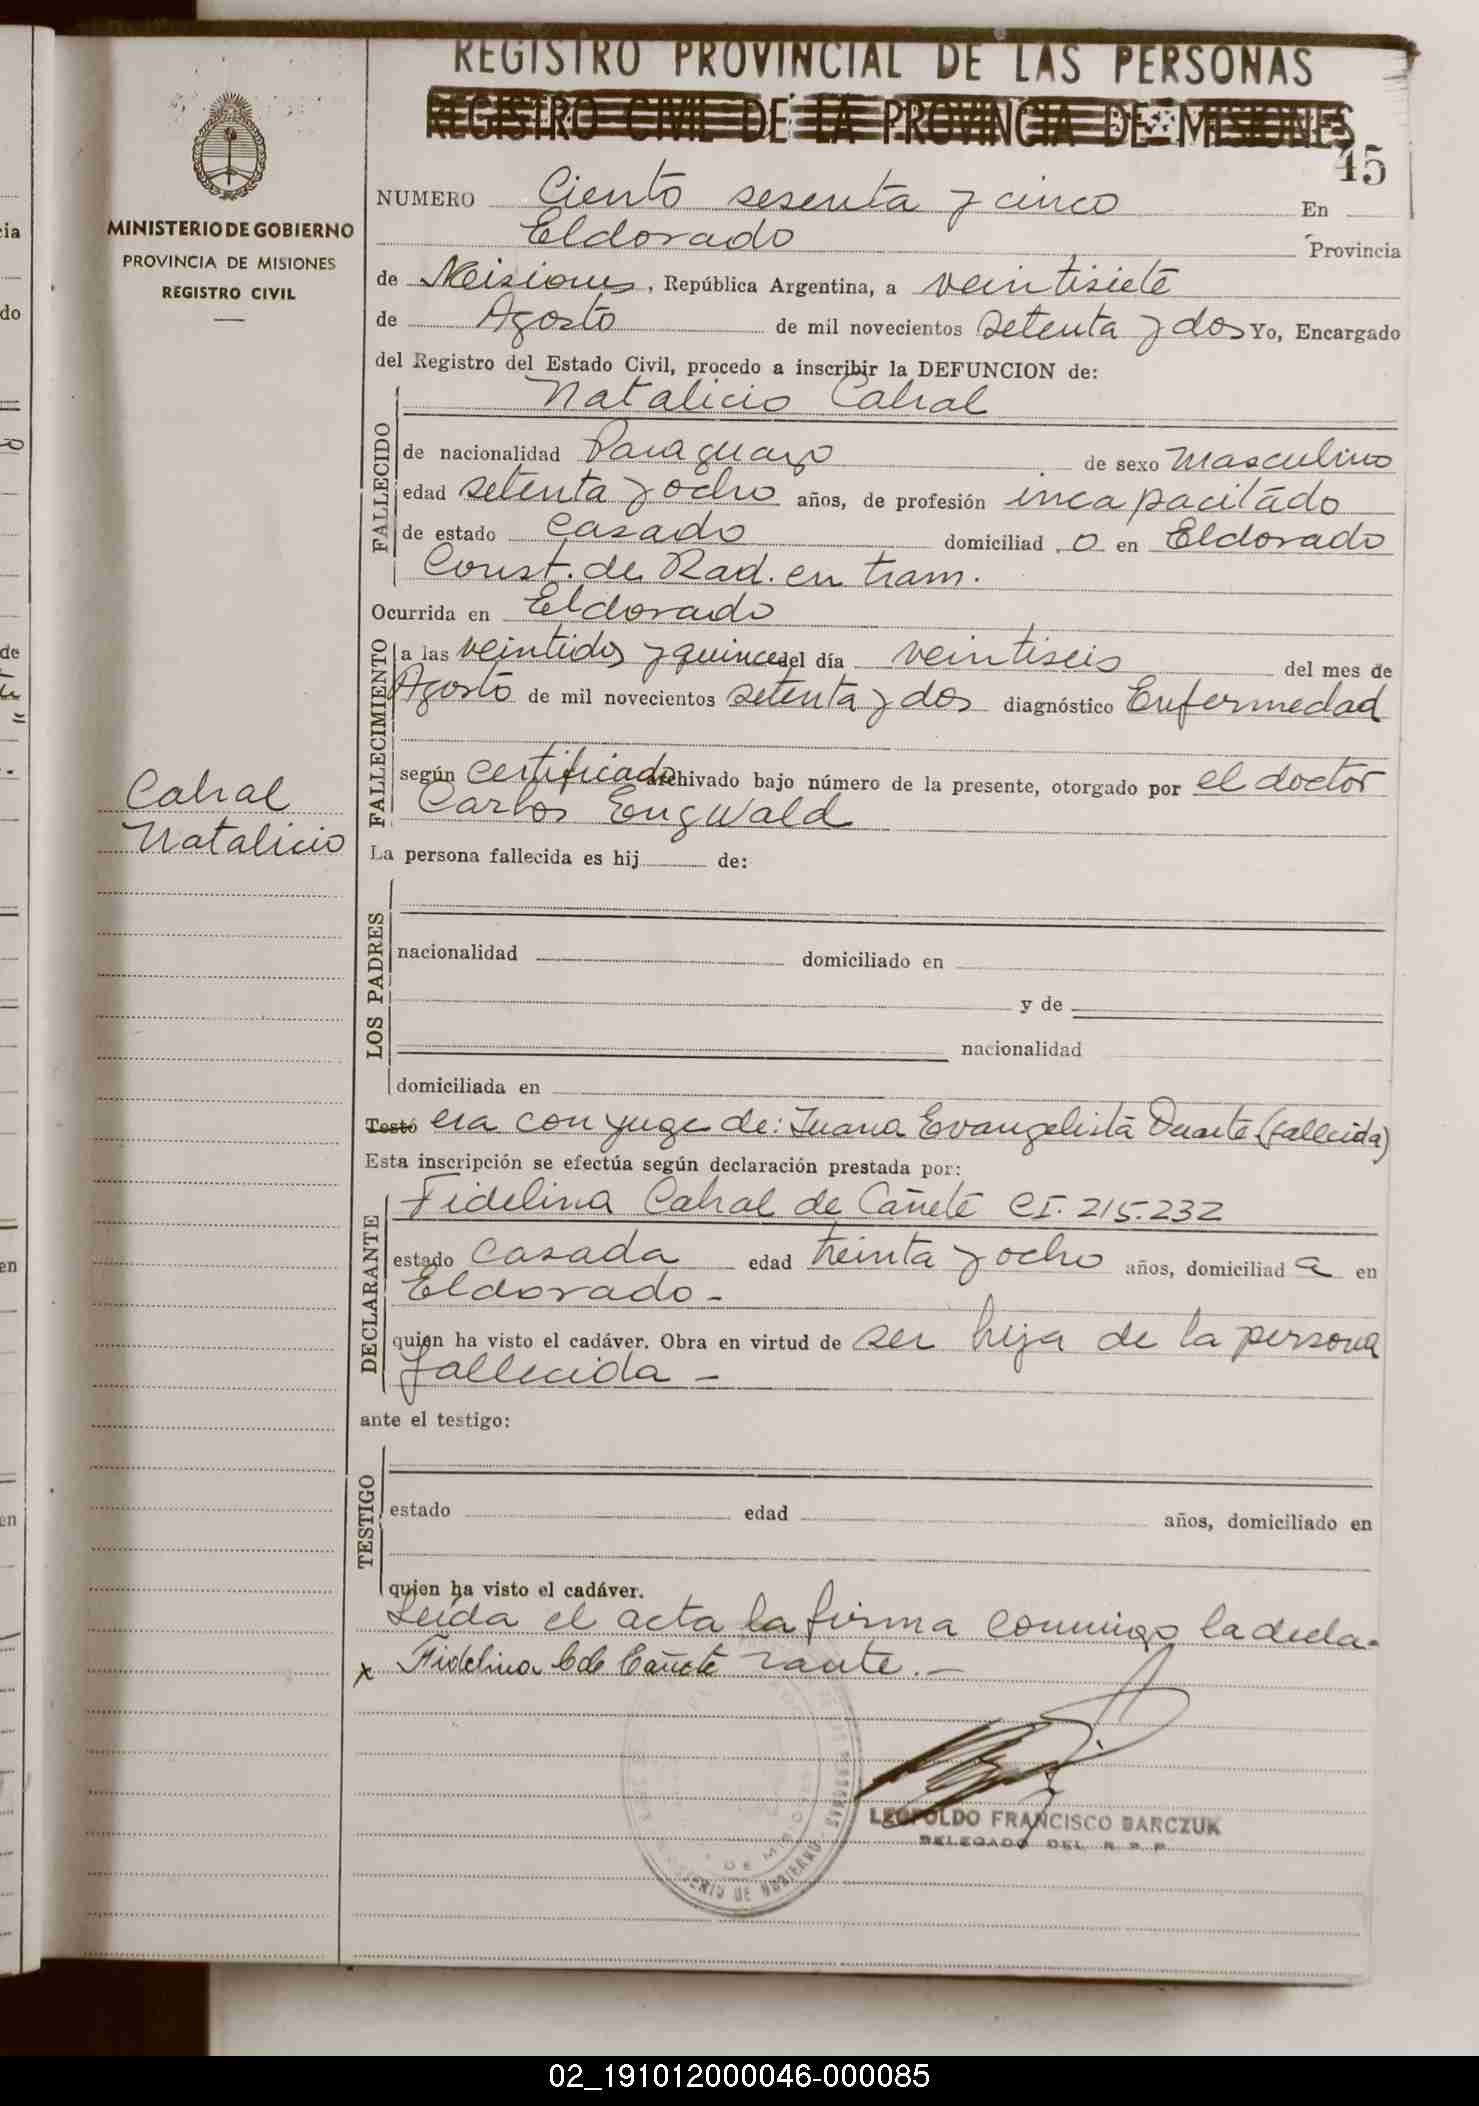 REGISTRO PROVINCIAL DE LAS PERSONAS
REGISTRO CIVIL DE LA PROVINCIA DE MISIONES
45
MINISTERIO DE GOBIERNO
PROVINCIA DE MISIONES
REGISTRO CIVIL
NUMERO Ciento sesenta y cinco En
Eldorado Provincia
de Misiones, República Argentina, a veintisiete
de Agosto de mil novecientos setenta y dos Yo, Encargado
del Registro del Estado Civil, procedo a inscribir la DEFUNCION de:
Natalicio Cabral
FALLECIDO
de nacionalidad Paraguayo de sexo Masculino
edad setenta y ocho años, de profesión incapacitado
de estado casado domiciliad o en Eldorado
Const. de Rad. en tram.
Ocurrida en Eldorado
FALLECIMIENTO
a las veintidos y quince del día veintiseis del mes de
Agosto de mil novecientos setenta y dos diagnóstico Enfermedad
según certificado archivado bajo número de la presente, otorgado por el doctor
Carlos Engwald
Cabral
Natalicio
La persona fallecida es hij de:
LOS PADRES
nacionalidad domiciliado en
y de
nacionalidad
domiciliada en
Testó era conyuge de: Juana Evangelista Duarte (fallecida)
Esta inscripción se efectúa según declaración prestada por:
DECLARANTE
Fidelina Cabral de Cañete CI. 215.232
estado casada edad treinta y ocho años, domiciliad a en
Eldorado -
quien ha visto el cadáver. Obra en virtud de ser hija de la persona
fallecida -
ante el testigo:
TESTIGO
estado edad años, domiciliado en
quien ha visto el cadáver.
Leída el acta la firma conmigo la decla-
x Fidelina C de Cañete rante. -
LEOPOLDO FRANCISCO BARCZUK
DELEGADO DEL R. P. P.
MINISTERIO DE GOBIERNO
02_191012000046-000085